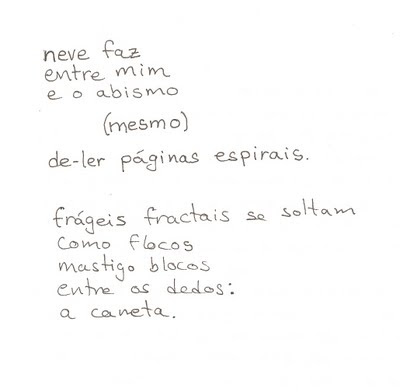 neve faz
entre mim
e o abismo
(mesmo)
de-ler páginas espirais.
frágeis fractais se soltam
como flocos
mastigo blocos
entre os dedos:
a caneta.